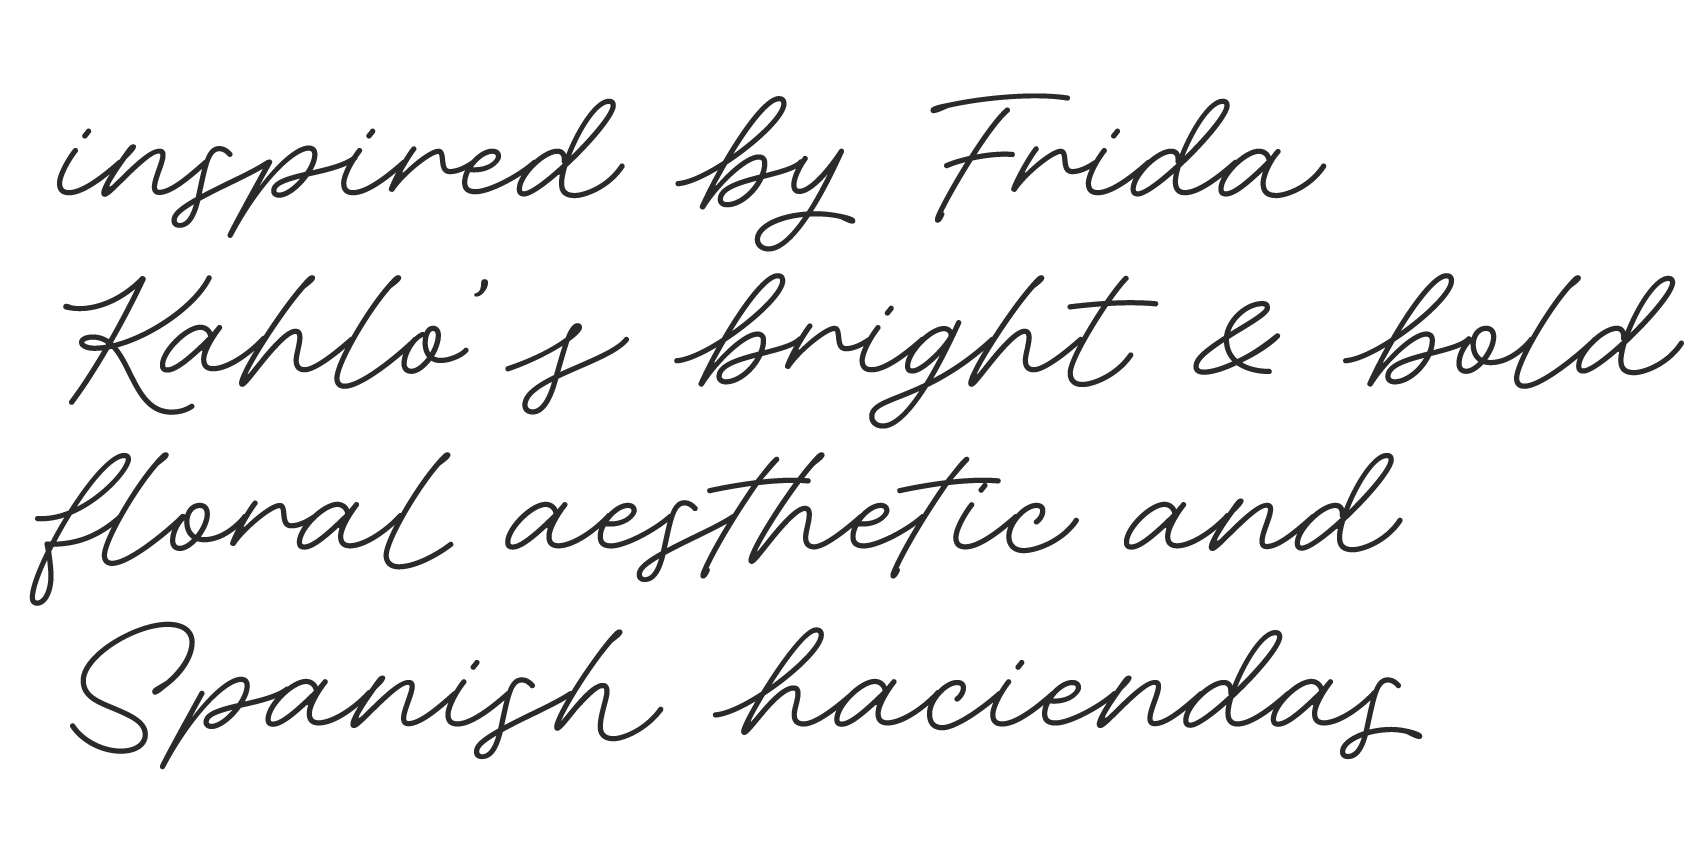 inspired by Frida
Kahlo's bright & bold
floral aesthetic and
Spanish haciendas